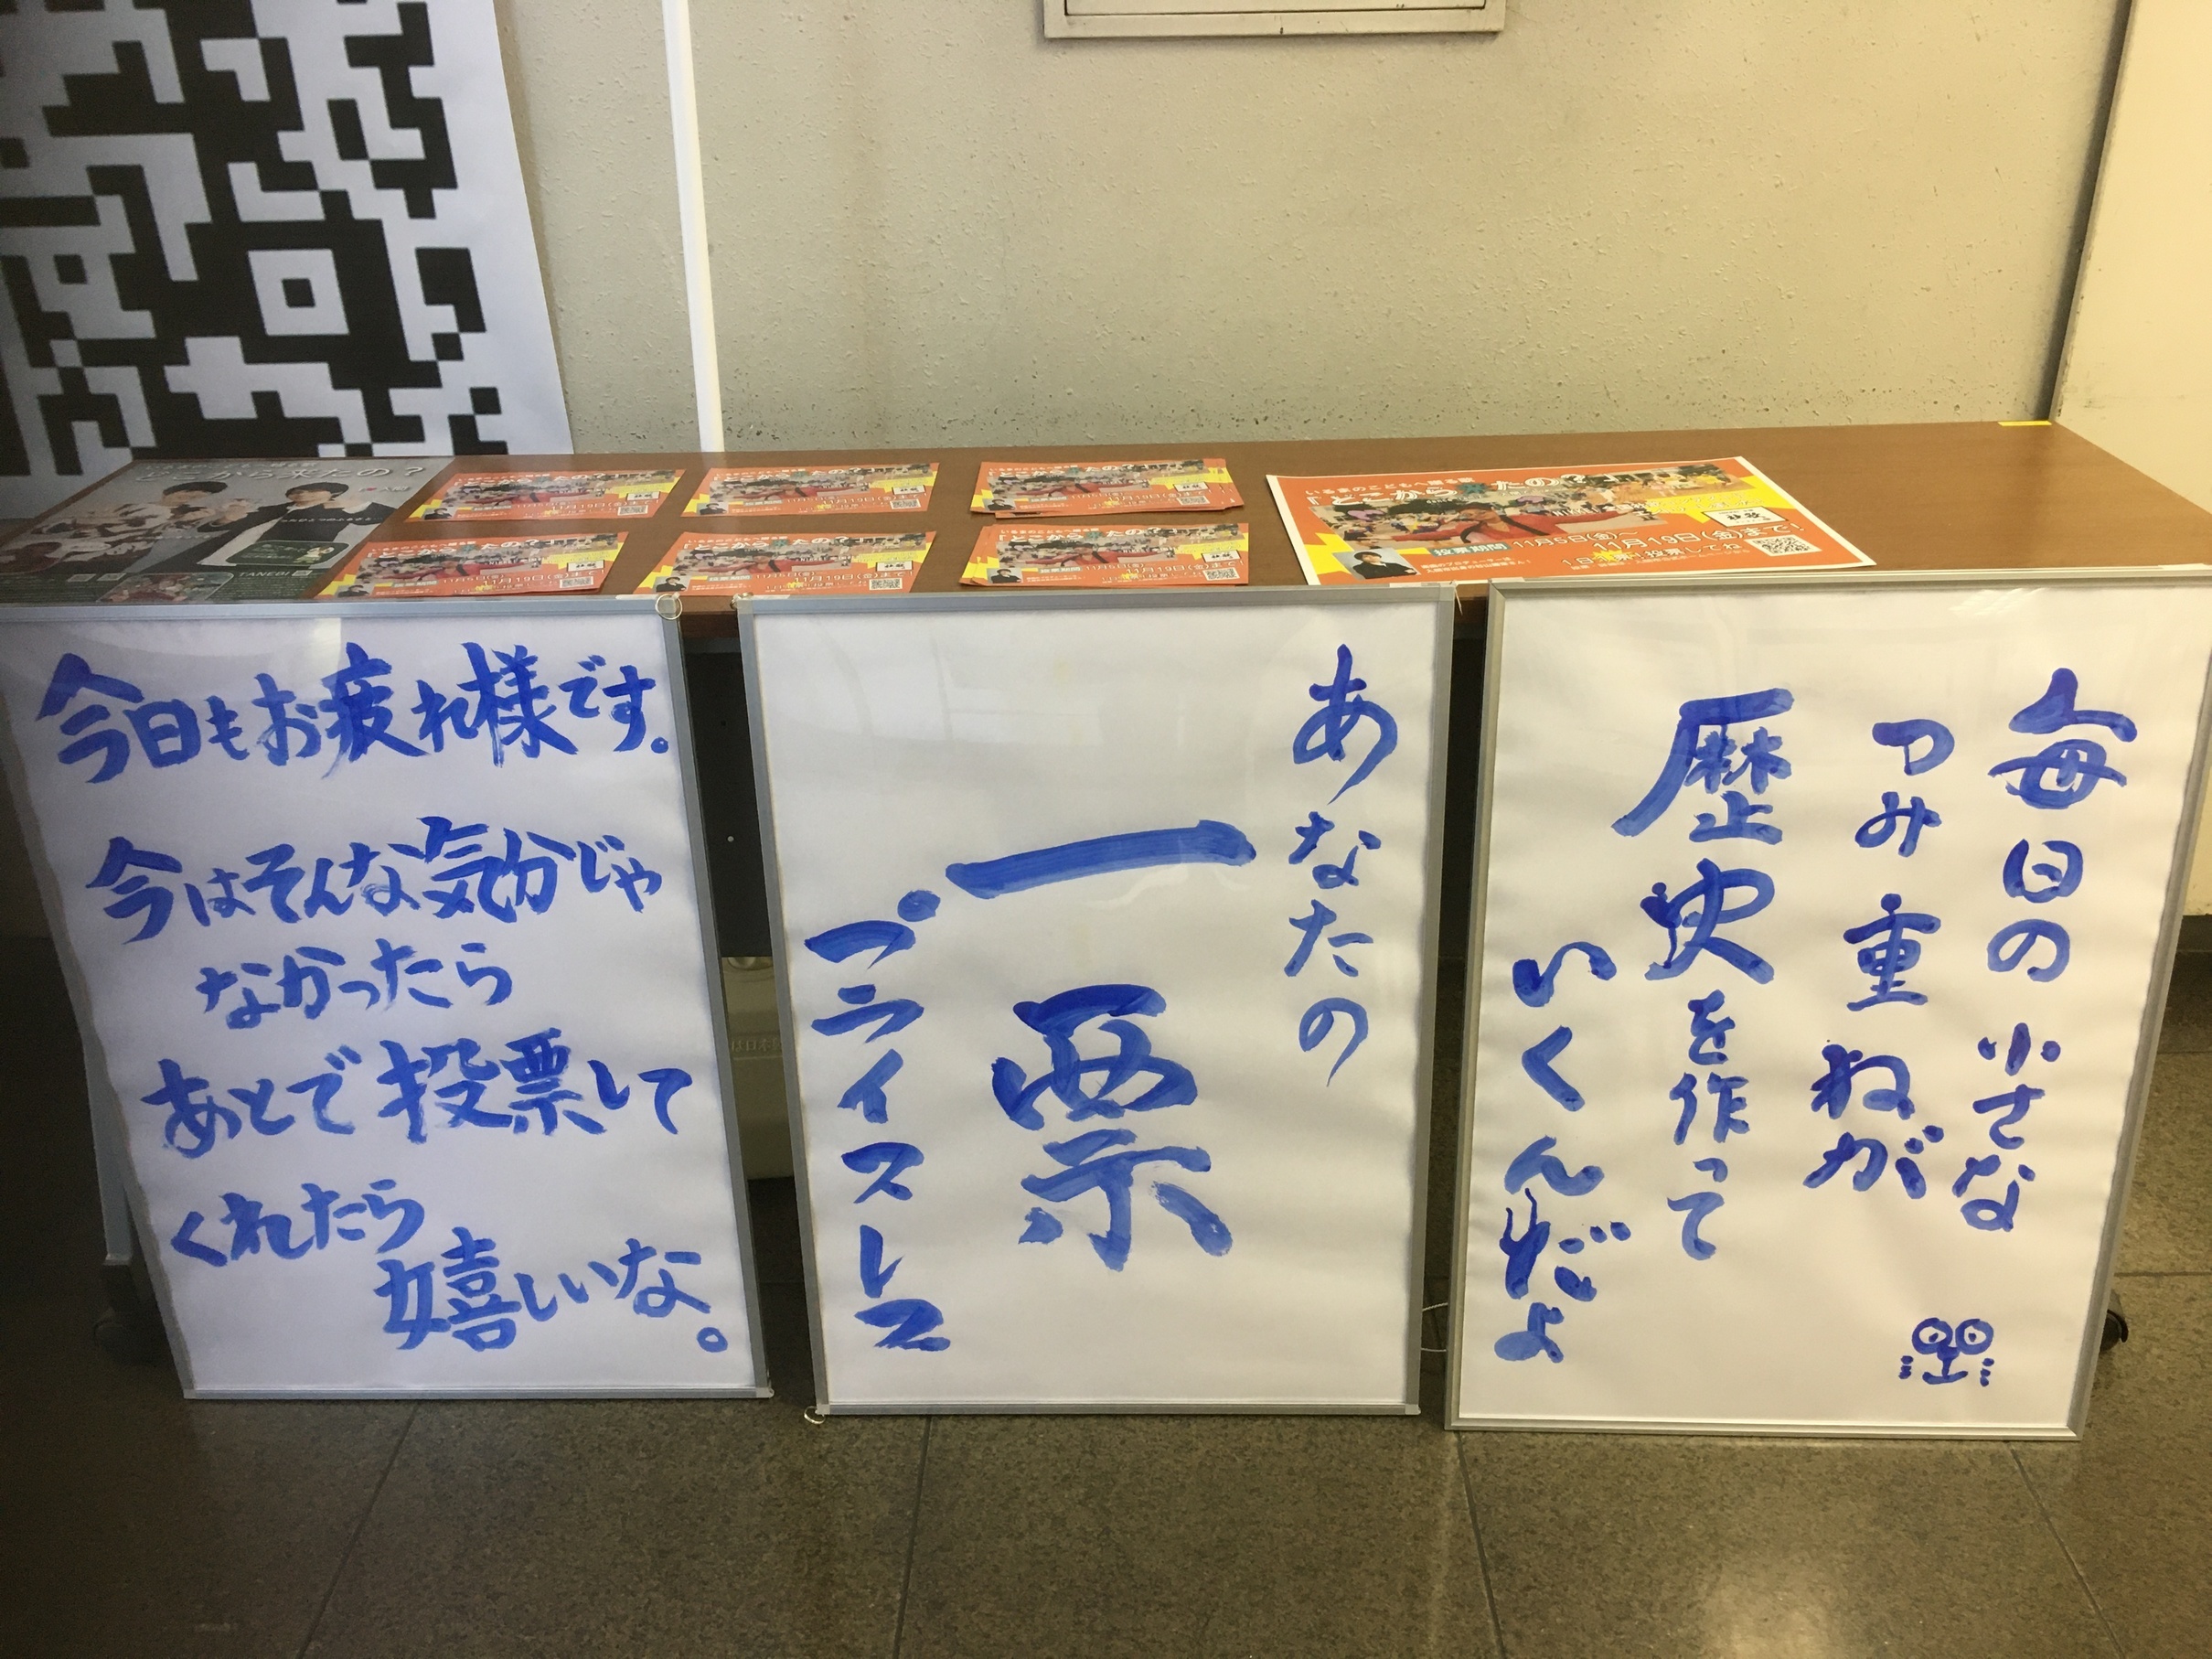 どこから来たの？
TANEBI
いるまのこどもへ贈る歌
「どこから来たの？」
投票期間 11月5日(金)〜
11月19日(金)まで！
1日1票！投票してね
今日もお疲れ様です。
今はそんな気分じゃ
なかったら
あとで投票して
くれたら
嬉しいな。
あなたの
一票
プライスレス
毎日の小さな
つみ重ねが
歴史を作って
いくんだよ